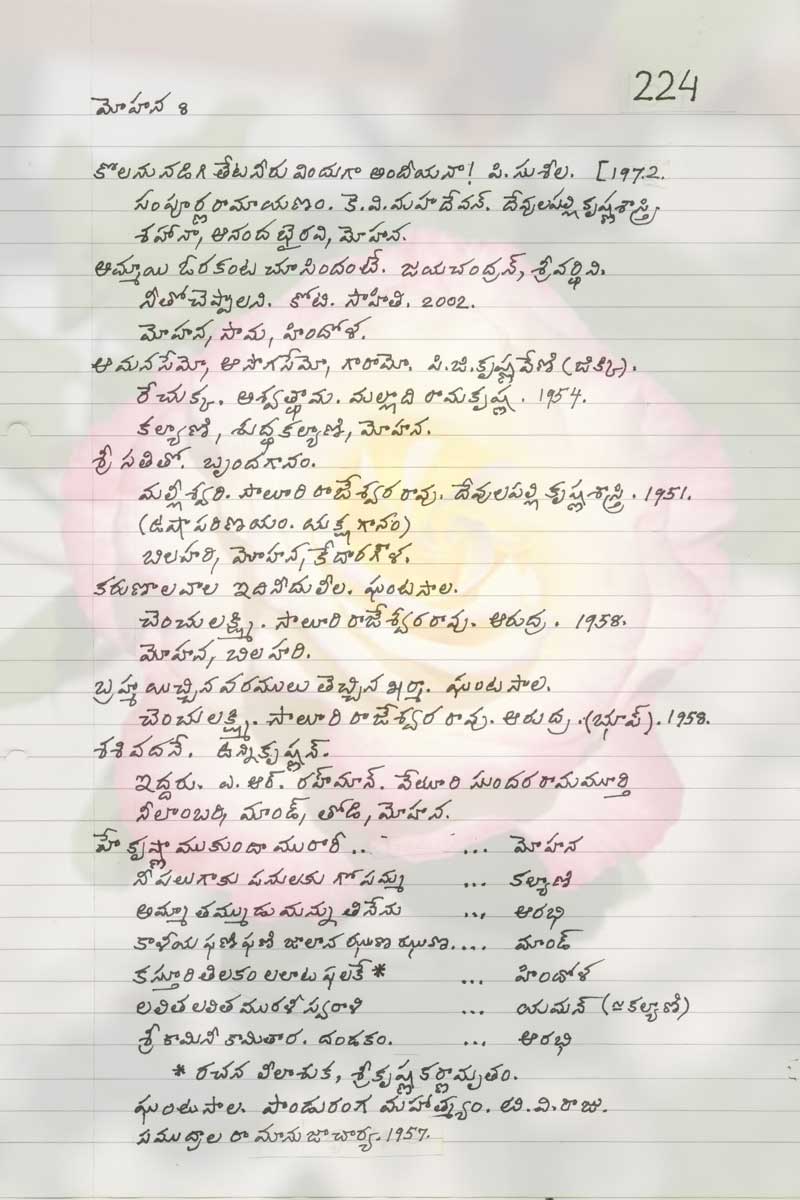 224
మోహన 8
కొలను నడిగి తేట నీరు విందుగా అందీయనా! పి. సుశీల. [1972.
సంపూర్ణ రామాయణం. కె.వి.మహదేవన్. దేవులపల్లి కృష్ణశాస్త్రి
శహానా, ఆనంద భైరవి, మోహన.
అమ్మాయి ఓరకంట చూసిందంటే. జయచంద్రన్, శ్రీవర్ధిని.
నీతో చెప్పాలని. కోటి. సాహితి. 2002.
మోహన, సామ, హిందోళ.
ఆ మనసేమో, ఆ సొగసేమో, గారామో. పి.జి.కృష్ణవేణి (జిక్కి).
రేచుక్క. అశ్వత్థామ. మల్లాది రామకృష్ణ. 1954.
కల్యాణి, శుద్ధకల్యాణి, మోహన.
శ్రీ సతితో. బృందగానం.
మల్లీశ్వరి. సాలూరి రాజేశ్వర రావు. దేవులపల్లి కృష్ణశాస్త్రి. 1951.
(ఉషా పరిణయం. యక్షగానం)
బిలహరి, మోహన, కేదారగౌళ.
కరుణాలవాల ఇది నీదు లీల. ఘంటసాల.
చెంచులక్ష్మి. సాలూరి రాజేశ్వరరావు. ఆరుద్ర. 1958.
మోహన, బిలహరి.
బ్రహ్మ యిచ్చిన వరములు తెచ్చిన ఖర్మా. ఘంటసాల.
చెంచులక్ష్మి. సాలూరి రాజేశ్వర రావు. ఆరుద్ర. (భూప్). 1958.
శశివదనే. ఉన్నికృష్ణన్.
ఇద్దరు. ఎ. ఆర్. రహ్మాన్. వేటూరి సుందరరామమూర్తి
నీలాంబరి, మాండ్, తోడి, మోహన.
హే కృష్ణా ముకుందా మురారీ .. ... మోహన
నీ పలుగాకు పనులకు గోపమ్మ ... కల్యాణి
అమ్మా తమ్ముడు మన్ను తినేను ... ఆరభి
కాళీయ ఫణి ఫణి జాలాన ఝణ ఝణ.... మాండ్
కస్తూరి తిలకం లలాట ఫలకే * ... హిందోళ
లలిత లలిత మురళీ స్వరాళి ... యమన్ (≃కల్యాణి)
శ్రీ కామినీ కామితార. దండకం. ... ఆరభి
* రచన లీలాశుక, శ్రీకృష్ణ కర్ణామృతం.
ఘంటసాల. పాండురంగ మహాత్మ్యం. టి.వి.రాజు.
సముద్రాల రామానుజాచార్య. 1957.